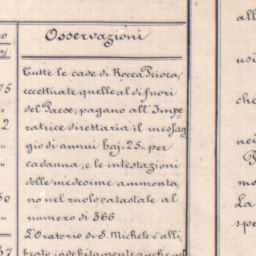 Osservazioni
Tutte le case di Rocca Priora,
eccettuate quelle al di fuori
del Paese, pagano all'Impe
ratrice direttaria il messag
gio di annui baj: 25,, per
cadauna, e le intestazioni
delle medesime ammonta,
no nel ruolo catastale al
numero di 366
L'Oratorio di S. Michele è alli
brato indebitamente
75
2
50
37
all
usi
che
nei
P
mo
La
spe